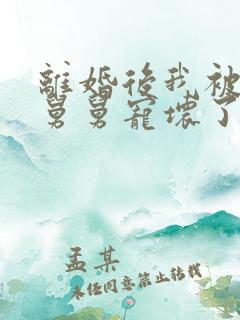 離婚後我被
舅舅寵壞了
孟某
未經同意禁止轉載